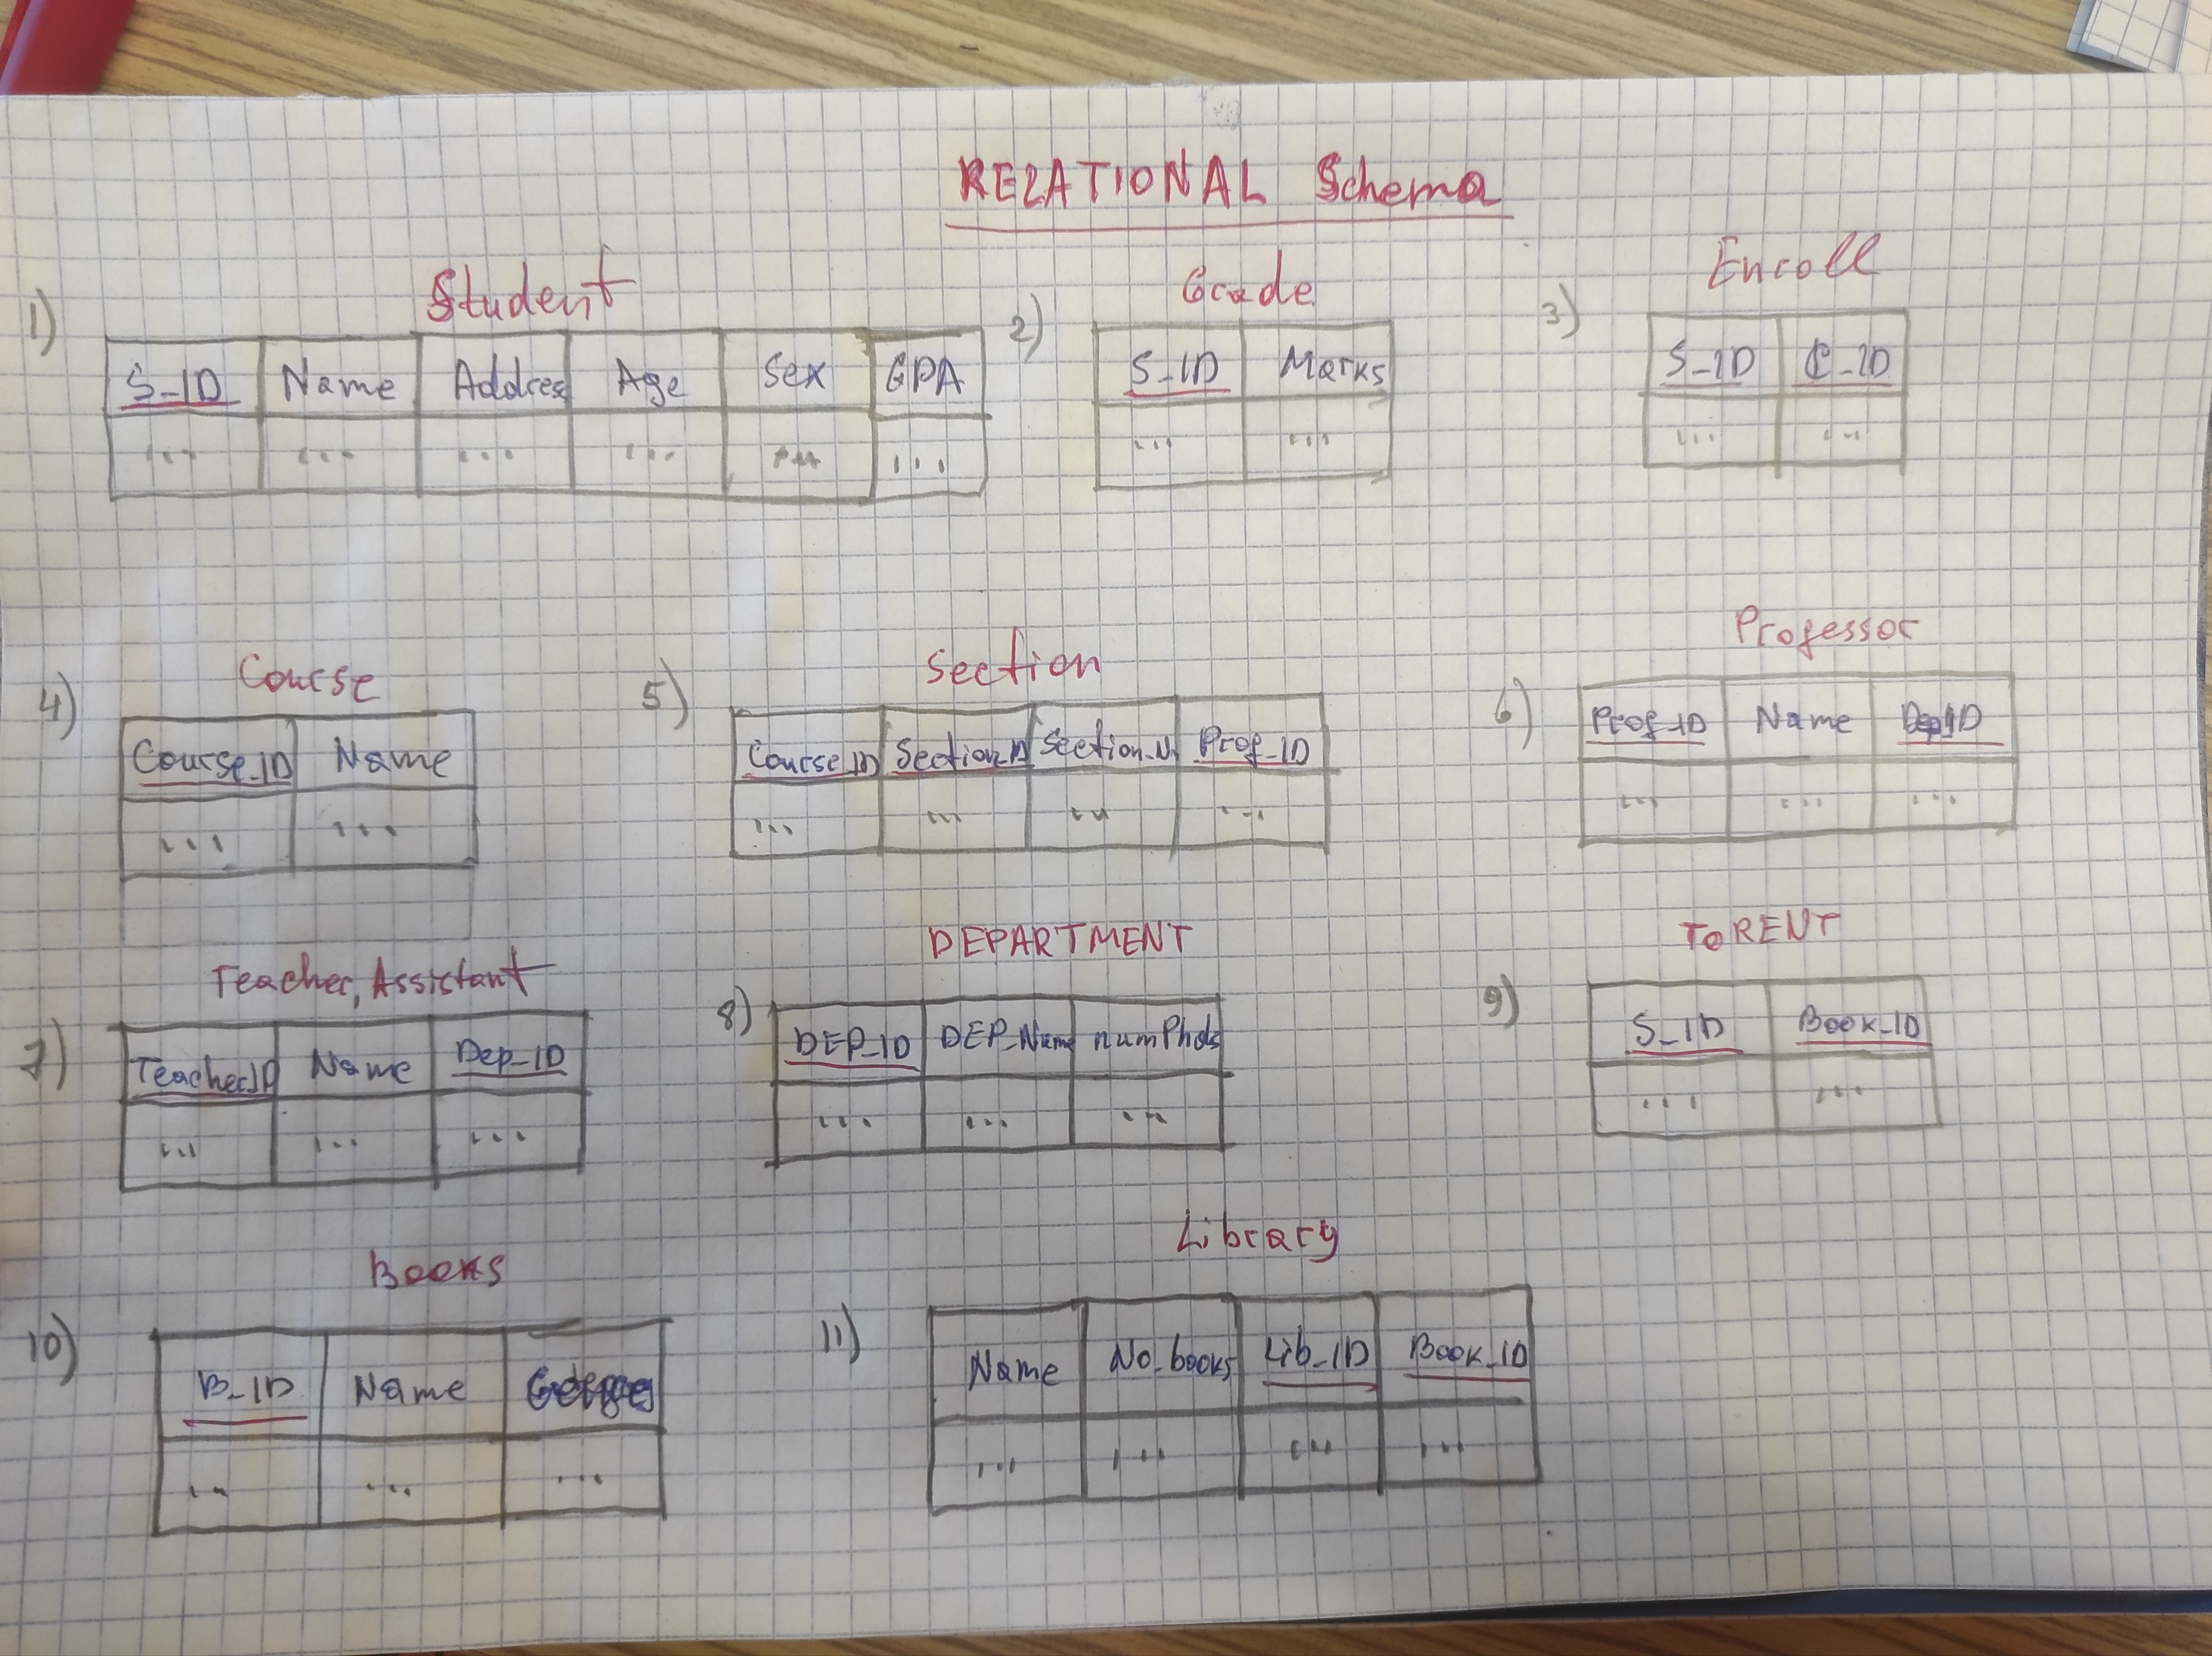 RELATIONAL Schema
1) Student
S_ID Name Addres Age Sex GPA
... ... ... ... ... ...
2) Grade
S_ID Marks
... ...
3) Enroll
S_ID C_ID
... ...
4) Course
Course_ID Name
... ...
5) Section
Course_ID Section_ID Section_N Prof_ID
... ... ... ...
6) Professor
Prof_ID Name DepID
... ... ...
7) Teacher, Assistant
TeacherID Name Dep_ID
... ... ...
8) DEPARTMENT
DEP_ID DEP_Name numPhds
... ... ...
9) To RENT
S_ID Book_ID
... ...
10) Books
B_ID Name
... ... ...
11) Library
Name No_books Lib_ID Book_ID
... ... ... ...